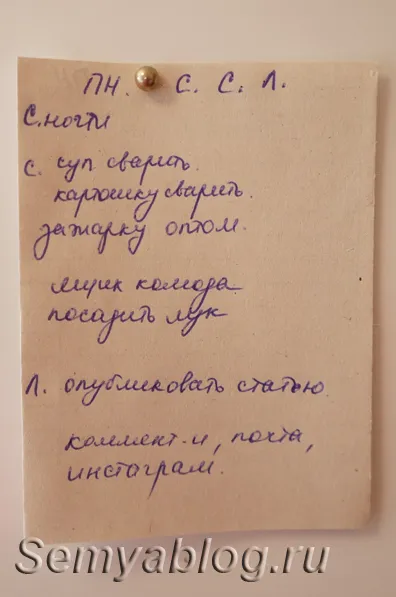 ПН. С. С. Л.
С. ногти
с. суп сварить.
картошку сварить.
зажарку оптом.
ящик комода
посадить лук
Л. опубликовать статью
коммент-и, почта,
инстаграм.
Semyablog.ru